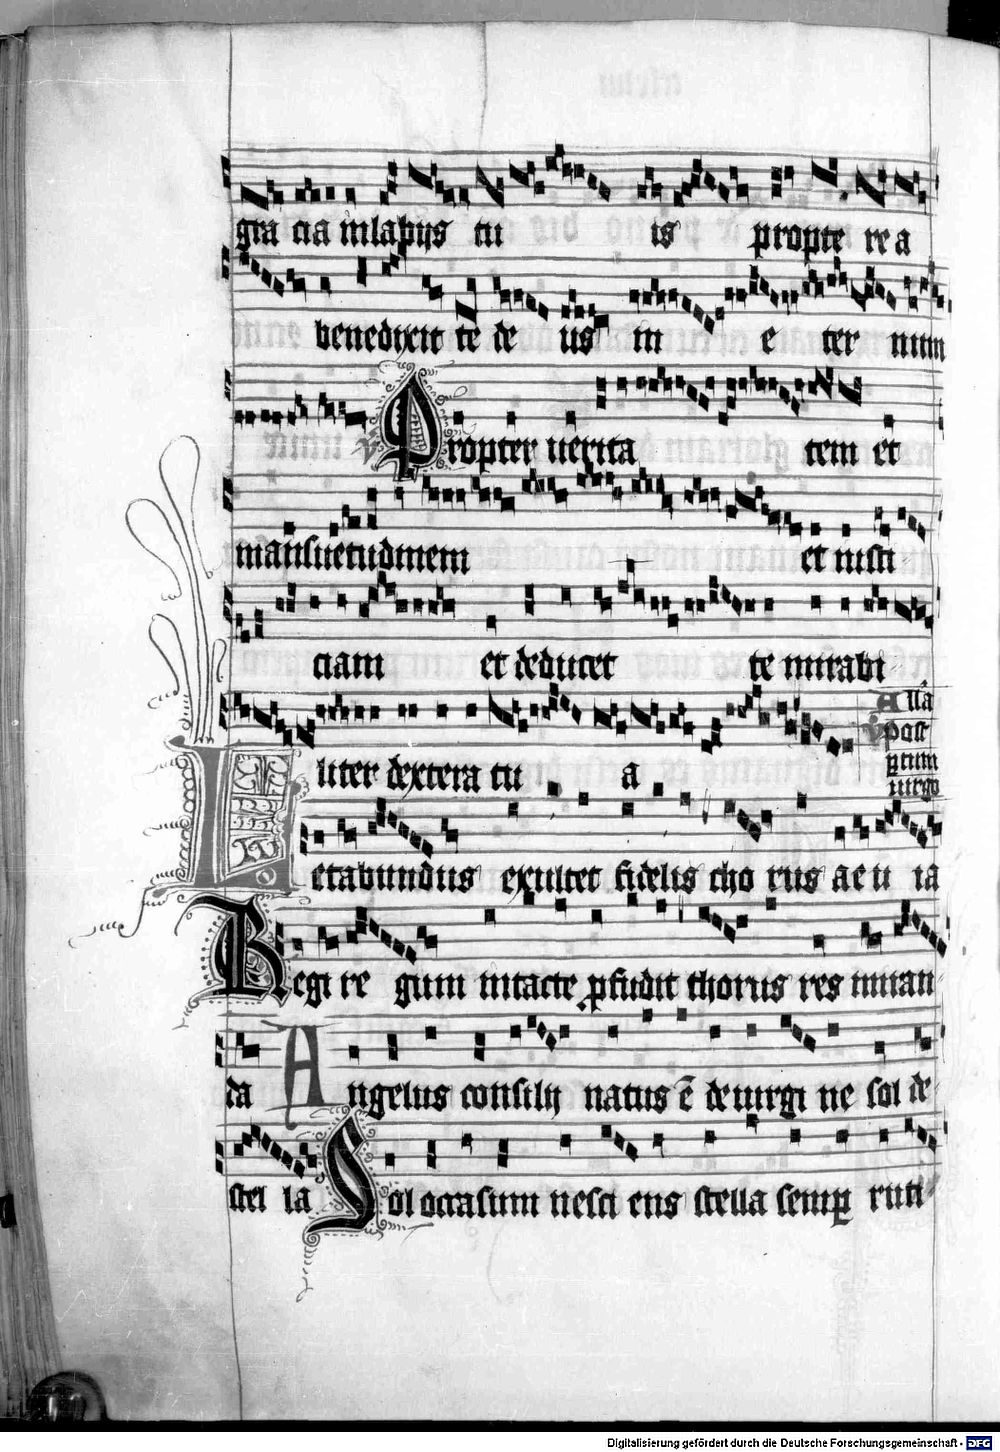 gra cia in labijs tu is propte re a
benedixit te de us in e ter num
Propter uerita tem et
mansuetudinem et iusti
ciam et deducet te mirabi
liter dextera tu a
Alla
post
partum
uirgo
Letabundus exultet fidelis cho rus ae u ia
Regi re gum intacte profudit thorus res miran
da Angelus consilij natus ē de uirgi ne sol de
stel la Sol occasum nesci ens stella semper ruti
Digitalisierung gefördert durch die Deutsche Forschungsgemeinschaft - DFG